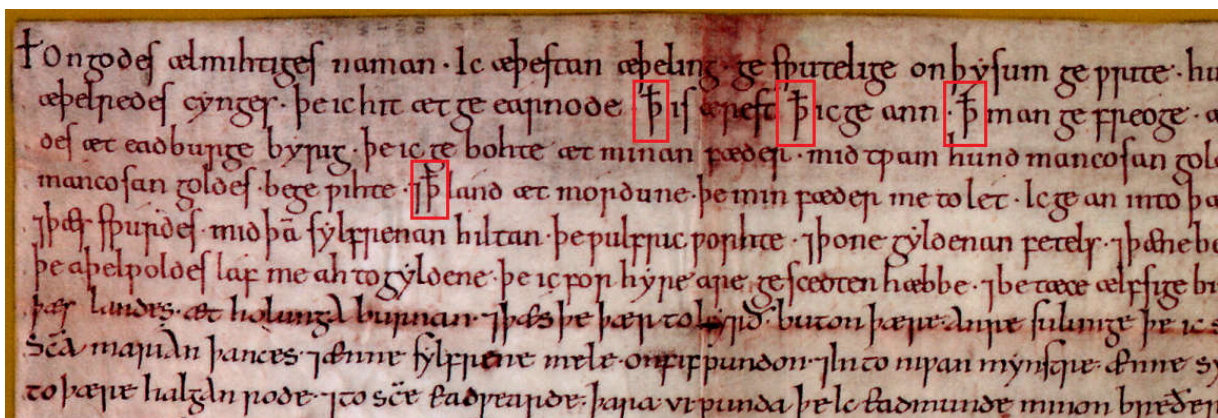 †On godes ælmihtiges naman · Ic æþestan æþeling · ge sƿutelige on þysum ge ƿrite · hu
æþelredes cynges · þe ic hit æt ge earnode · ꝥ is ærest ꝥ ic ge ann · ꝥ man ge freoge ·
des æt eadburge byrig · þe ic ge bohte æt minan fæder · mid tƿam hund mancosan gold
mancosan goldes · be ge ƿihte · ⁊ ꝥ land æt mordune · þe min fæder me to let · Ic ge an into þæ
⁊ þæs sƿurdes · mid þā sylfrenan hiltan · þe ƿulfric ƿorhte · ⁊ þone gyldenan fetels · ⁊ þæne be
þe aþelƿoldes laf me ah to gyldene · þe ic for hyre are ge sceoten hæbbe · ⁊ betæce ælfsige bi
þæs landes · æt holunga burnan · ⁊ þæs þe þær to hyrð · buton þære anre sulunge þe ic s
sc̄a marian þances · ⁊ ænne sylfrene mele on fif pundon · ⁊ Into niƿan mynstre · ænne sy
to þære halgan rode · ⁊ to sc̄e Eadƿearde · þara vi punda þe Ic Eadmunde minon breðer